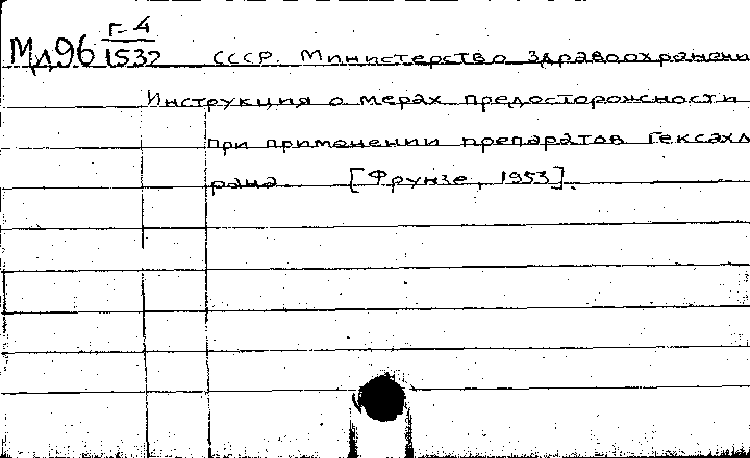 Мл96 Г-4/1532 СССР. Министерство здравоохранени
Инструкция о мерах предосторожности
при применении препаратов гексахл
рана. [Фрунзе, 1953].